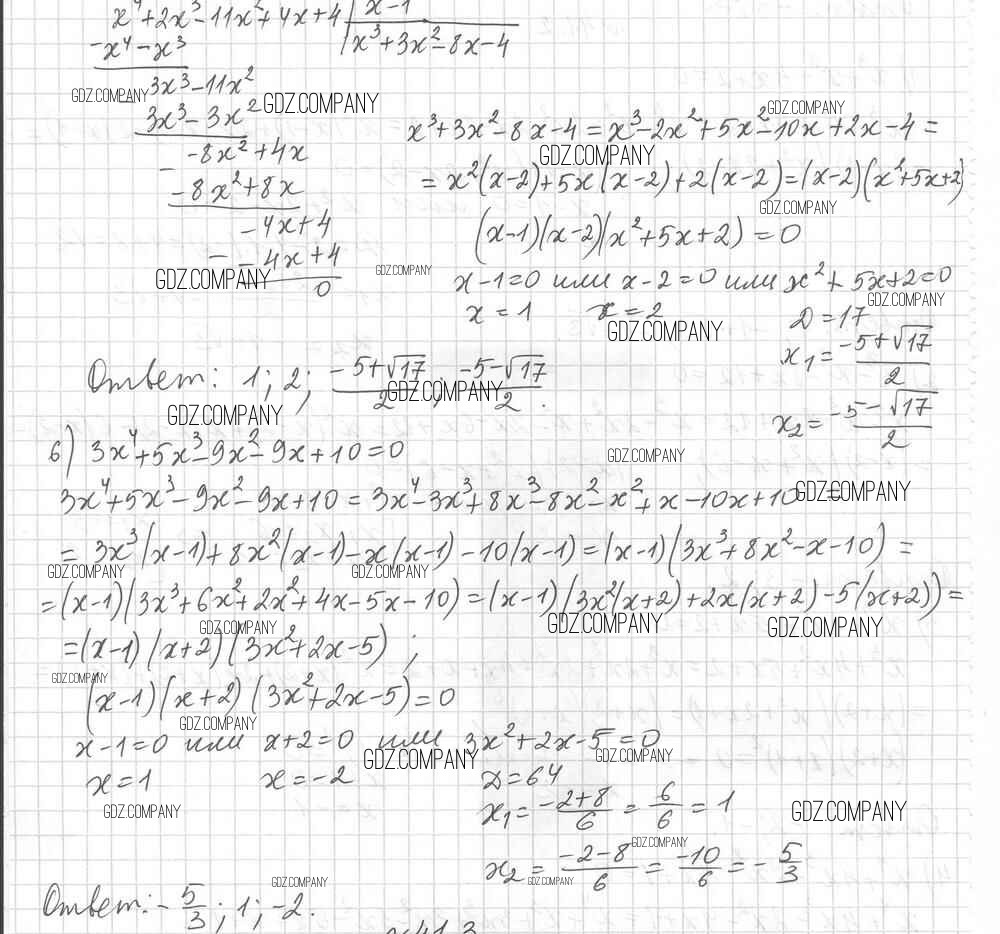 x⁴+2x³-11x²+4x+4 | x-1
-x⁴-x³
x³+3x²-8x-4
3x³-11x²
GDZ.COMPANY
GDZ.COMPANY
3x³-3x²
-8x²+4x
-
-8x²+8x
-4x+4
-
-4x+4
0
GDZ.COMPANY
GDZ.COMPANY
GDZ.COMPANY
x³+3x²-8x-4=x³-2x²+5x²-10x+2x-4=
GDZ.COMPANY
=x²(x-2)+5x(x-2)+2(x-2)=(x-2)(x²+5x+2)
GDZ.COMPANY
(x-1)(x-2)(x²+5x+2)=0
x-1=0 или x-2=0 или x²+5x+2=0
GDZ.COMPANY
x=1 x=2 D=17
GDZ.COMPANY
x₁=(-5+√17)/2
x₂=(-5-√17)/2
Ответ: 1; 2; (-5+√17)/2; (-5-√17)/2.
GDZ.COMPANY
GDZ.COMPANY
б) 3x⁴+5x³-9x²-9x+10=0
GDZ.COMPANY
3x⁴+5x³-9x²-9x+10=3x⁴-3x³+8x³-8x²-x²+x-10x+10=
GDZ.COMPANY
=3x³(x-1)+8x²(x-1)-x(x-1)-10(x-1)=(x-1)(3x³+8x²-x-10)=
GDZ.COMPANY GDZ.COMPANY
=(x-1)(3x³+6x²+2x²+4x-5x-10)=(x-1)(3x²(x+2)+2x(x+2)-5(x+2))=
GDZ.COMPANY GDZ.COMPANY GDZ.COMPANY
=(x-1)(x+2)(3x²+2x-5);
GDZ.COMPANY
(x-1)(x+2)(3x²+2x-5)=0
GDZ.COMPANY
x-1=0 или x+2=0 или 3x²+2x-5=0
GDZ.COMPANY GDZ.COMPANY
x=1 x=-2 D=64
GDZ.COMPANY GDZ.COMPANY
x₁=(-2+8)/6=6/6=1
GDZ.COMPANY
x₂=(-2-8)/6=-10/6=-5/3
GDZ.COMPANY GDZ.COMPANY
Ответ: -5/3; 1; -2.